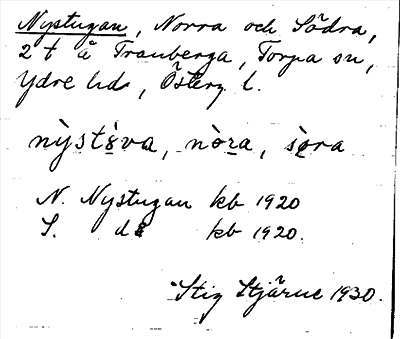 Nystugan, Norra och Södra,
2 t å Tranberga, Torpa sn,
Ydre hd, Österg l.
nỳstòva, nòra, sòra
N. Nystugan kb 1920
S. do kb 1920.
Stig Stjärne 1930.